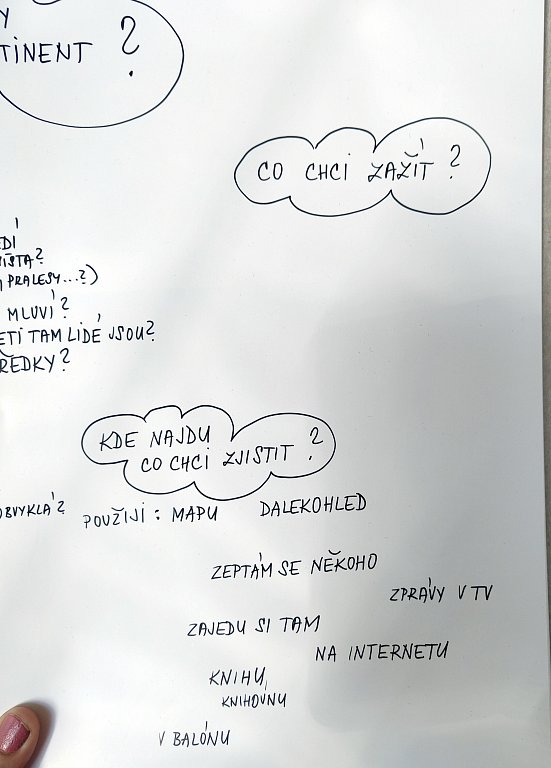 Y
TINENT ?
CO CHCI ZAŽÍT ?
Í
EDÍ
ÍSTA?
PRALESY...?)
MLUVÍ?
ETÍ TAM LIDÉ JSOU?
ŘEDKY?
KDE NAJDU
CO CHCI ZJISTIT ?
OBVYKLÁ?
POUŽIJI : MAPU DALEKOHLED
ZEPTÁM SE NĚKOHO
ZPRÁVY V TV
ZAJEDU SI TAM
NA INTERNETU
KNIHU,
KNIHOVNU
V BALÓNU